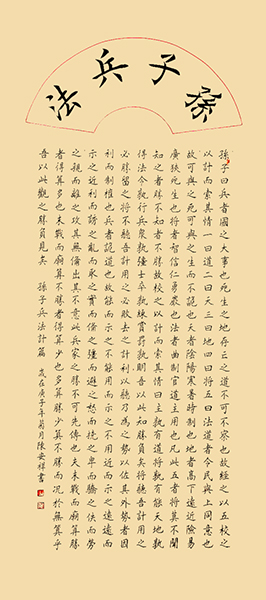 孫子兵法
孫子曰兵者國之大事也死生之地存亡之道不可不察也故經之以五校之
以計而索其情一曰道二曰天三曰地四曰將五曰法道者令民與上同意也
故可與之死可與之生而不詭也天者陰陽寒暑時制也地者高下遠近險易
廣狹死生也將者智信仁勇嚴也法者曲制官道主用也凡此五者將莫不聞
知之者勝不知者不勝故校之以計而索其情曰主孰有道將孰有能天地孰
得法令孰行兵衆孰強士卒孰練賞罰孰明吾以此知勝負矣將聽吾計用之
必勝留之將不聽吾計用之必敗去之計利以聽乃為之勢以佐其外勢者因
利而制權也兵者詭道也故能而示之不能用而示之不用近而示之遠遠而
示之近利而誘之亂而取之實而備之強而避之怒而撓之卑而驕之佚而勞
之親而離之攻其無備出其不意此兵家之勝不可先傳也夫未戰而廟算勝
者得算多也未戰而廟算不勝者得算少也多算勝少算不勝而況於無算乎
吾以此觀之勝負見矣 孫子兵法計篇 歲在庚子年菊月陳安祥書